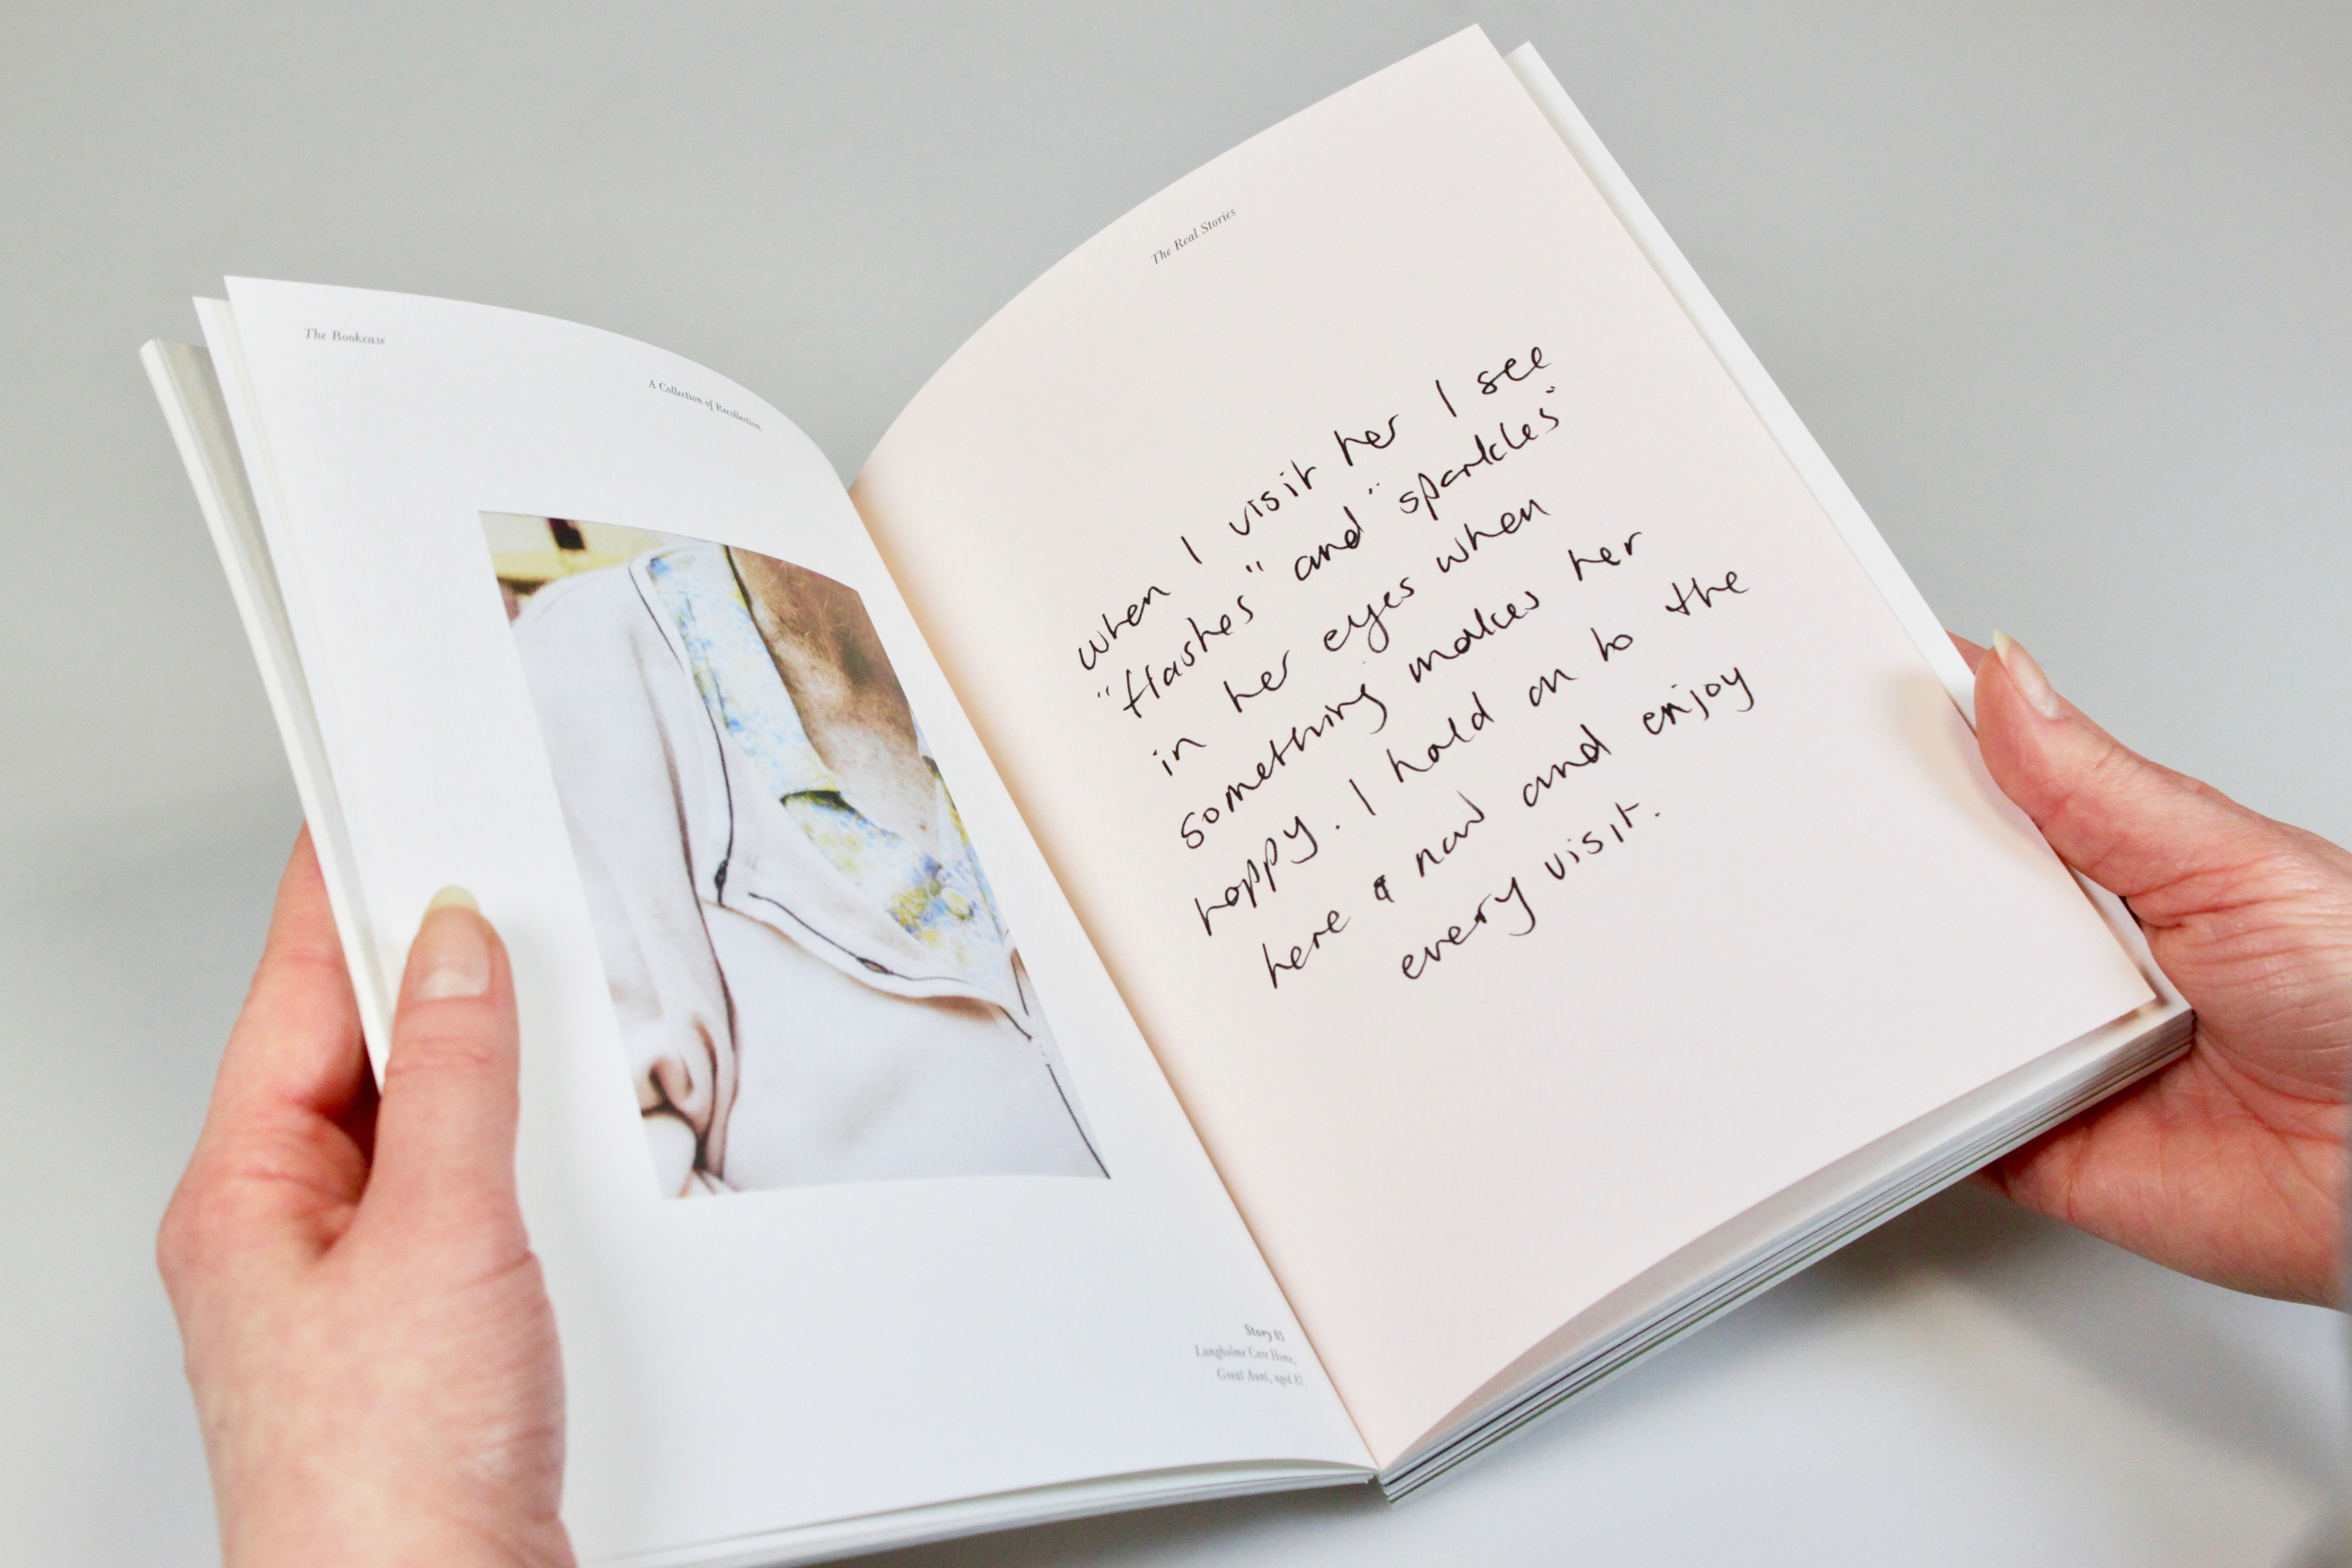 The Bookcase
A Collection of Recollection
Story 05
Langholme Care Home,
Great Aunt, aged 87.
The Real Stories
when I visit her I see
"flashes" and "sparkles"
in her eyes when
something makes her
happy. I hold on to the
here & now and enjoy
every visit.